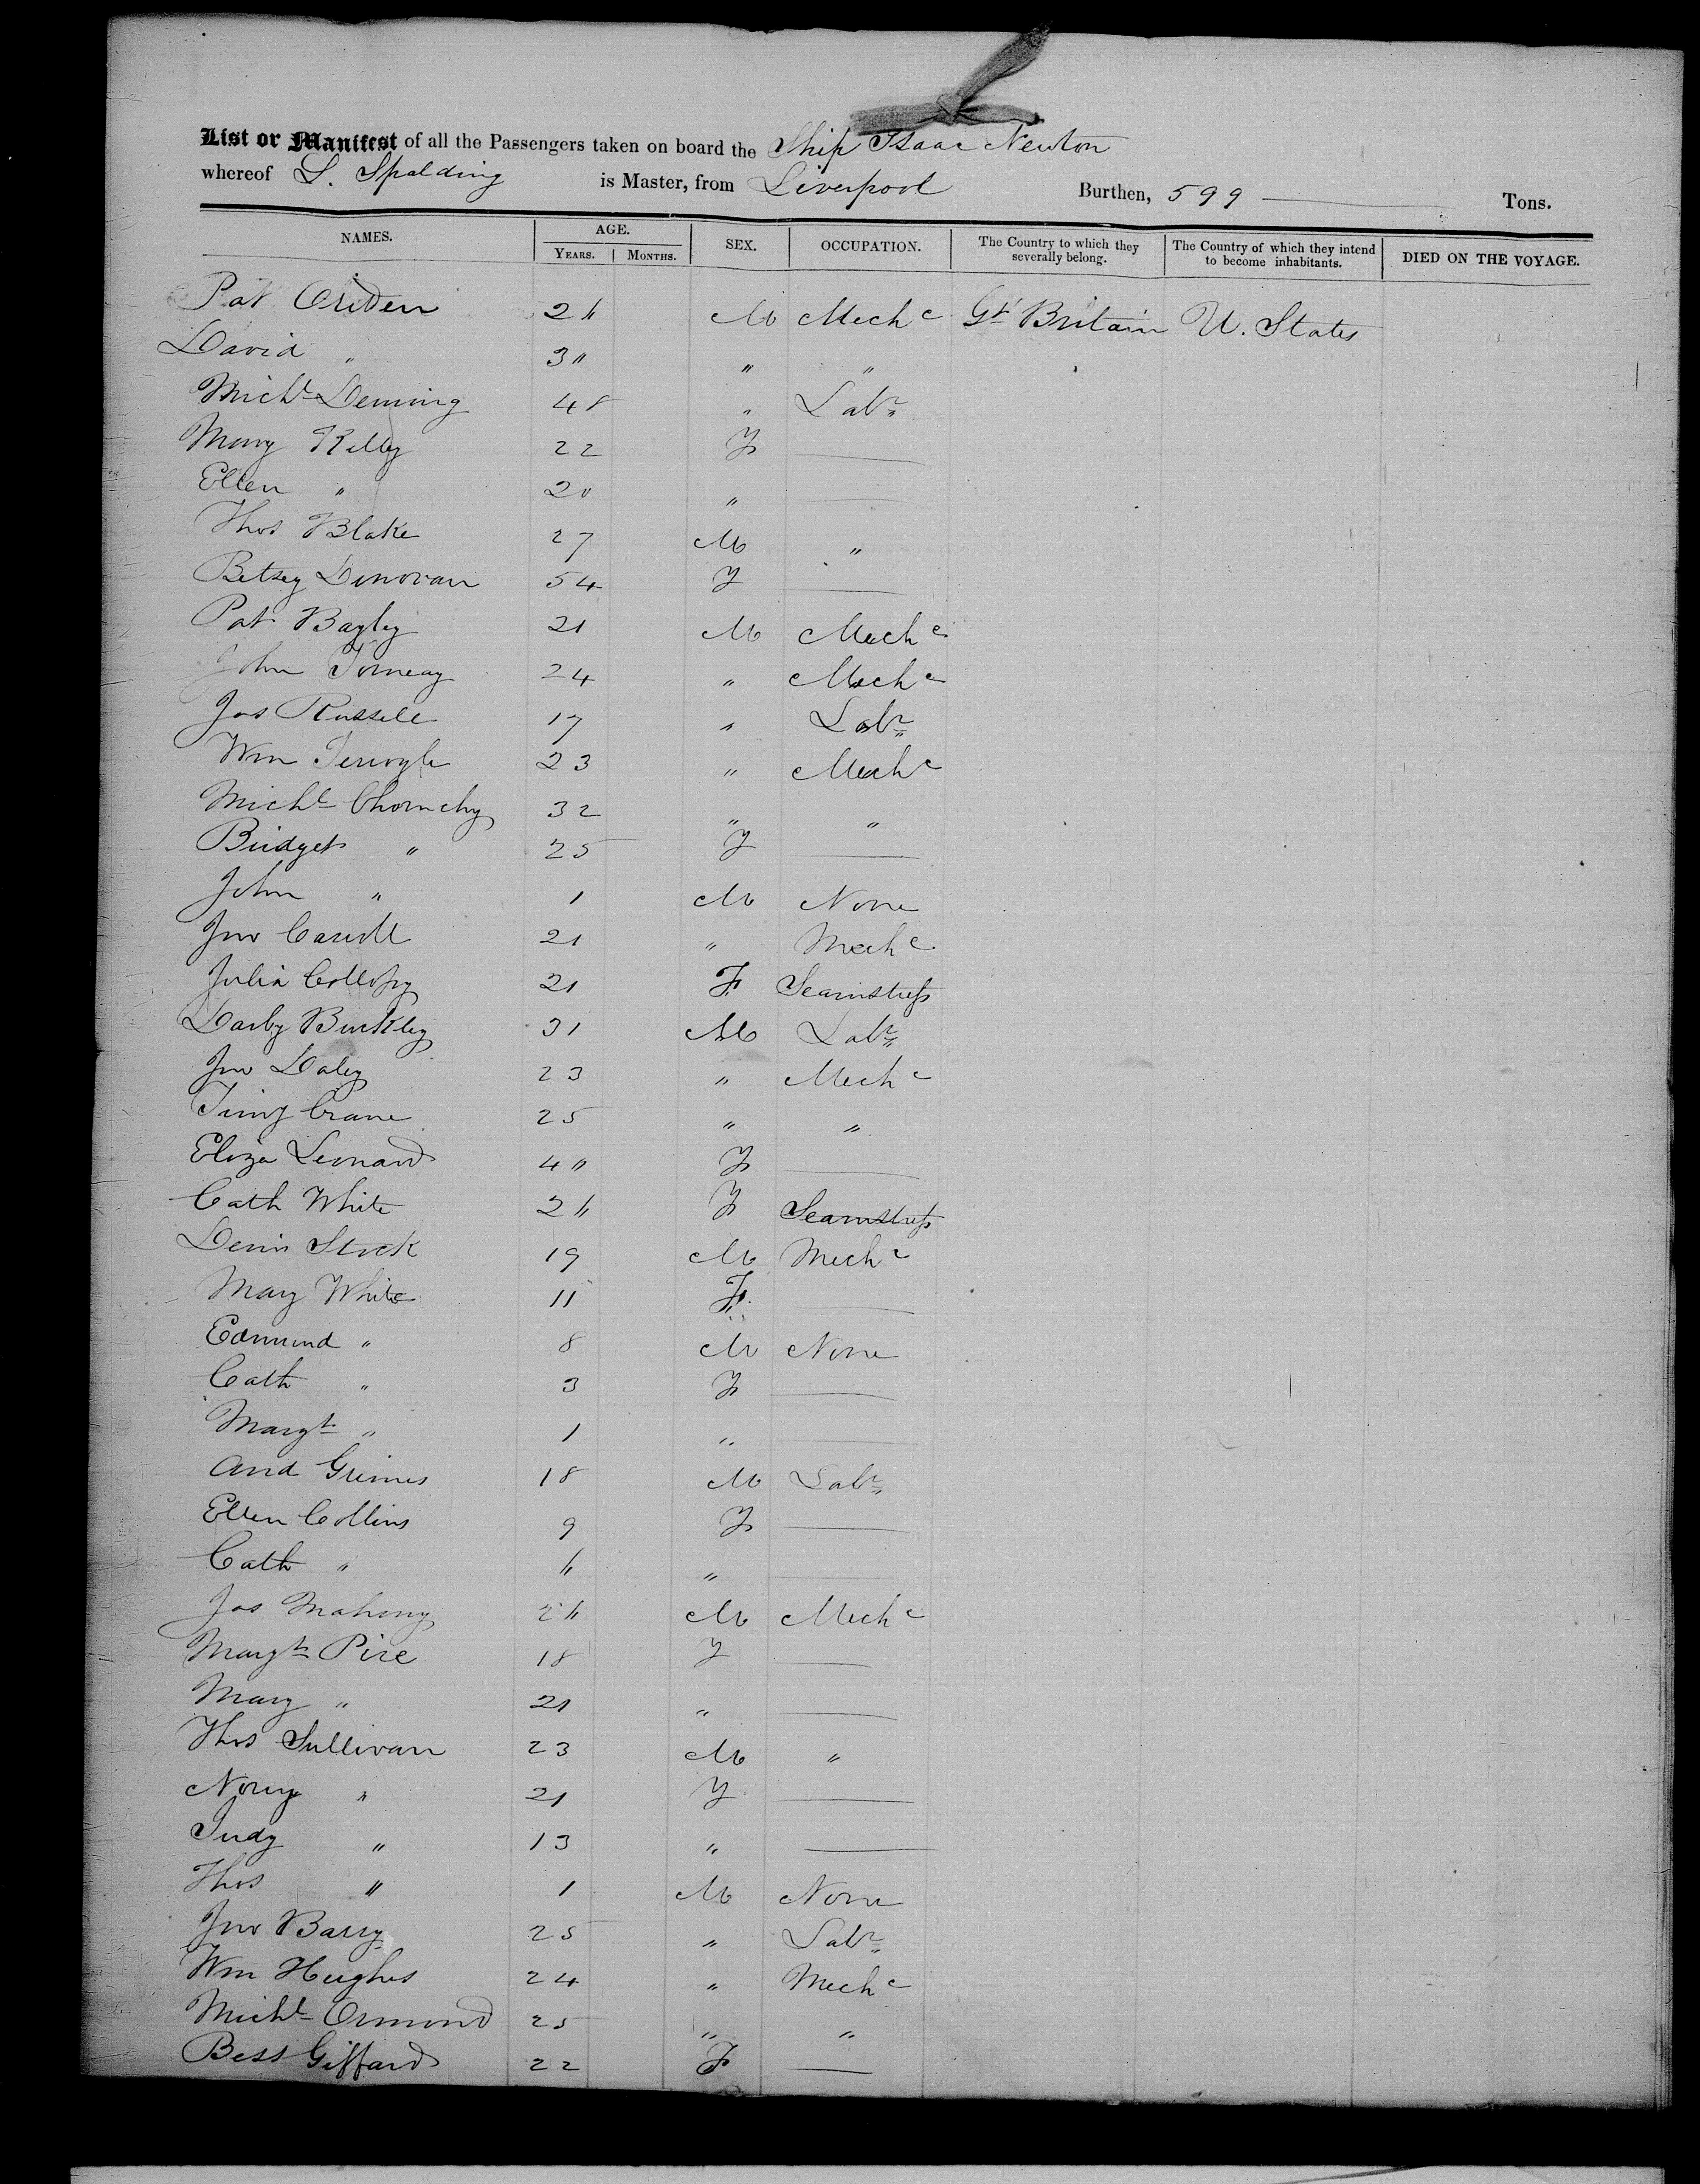 List or Manifest of all the Passengers taken on board the Ship Isaac Newton
whereof S. Spalding is Master, from Liverpool Burthen, 599 Tons.
NAMES. AGE. SEX. OCCUPATION. The Country to which they severally belong. The Country of which they intend to become inhabitants. DIED ON THE VOYAGE.
YEARS. MONTHS.
Pat 26 M Mechc Gt Britain U. States
David " 30 " "
Michl Deming 48 " Labr
Mary Kelly 22 F
Ellen " 20 "
Thos Blake 27 M "
Betsey Donovan 54 F
Pat Bagley 21 M Mechc
John Torneay 24 " Mechc
Jas Russell 17 " Labr
Wm 23 " Mechc
Michl 32 " "
Bridget " 25 F
John " 1 M None
Jno Carroll 21 " Mechc
Julia Collopy 21 F Seamstress
Darby Buckley 31 M Labr
Jno Daley 23 " Mechc
Timy Crane 25 " "
Eliza Leonard 40 F
Cath White 26 F Seamstress
Denis Stack 19 M Mechc
Mary White 11 F
Edmund " 8 M None
Cath " 3 F
Margt " 1 "
And Grimes 18 M Labr
Ellen Collins 9 F
Cath " 6 "
Jas Mahony 26 M Mechc
Margt Pire 18 F
Mary " 21 "
Thos Sullivan 23 M "
Nory " 21 F
Judy " 13 "
Thos " 1 M None
Jno Barry 25 " Labr
Wm Hughes 24 " Mechc
Michl Ormond 25 " "
Bess Giffard 22 F